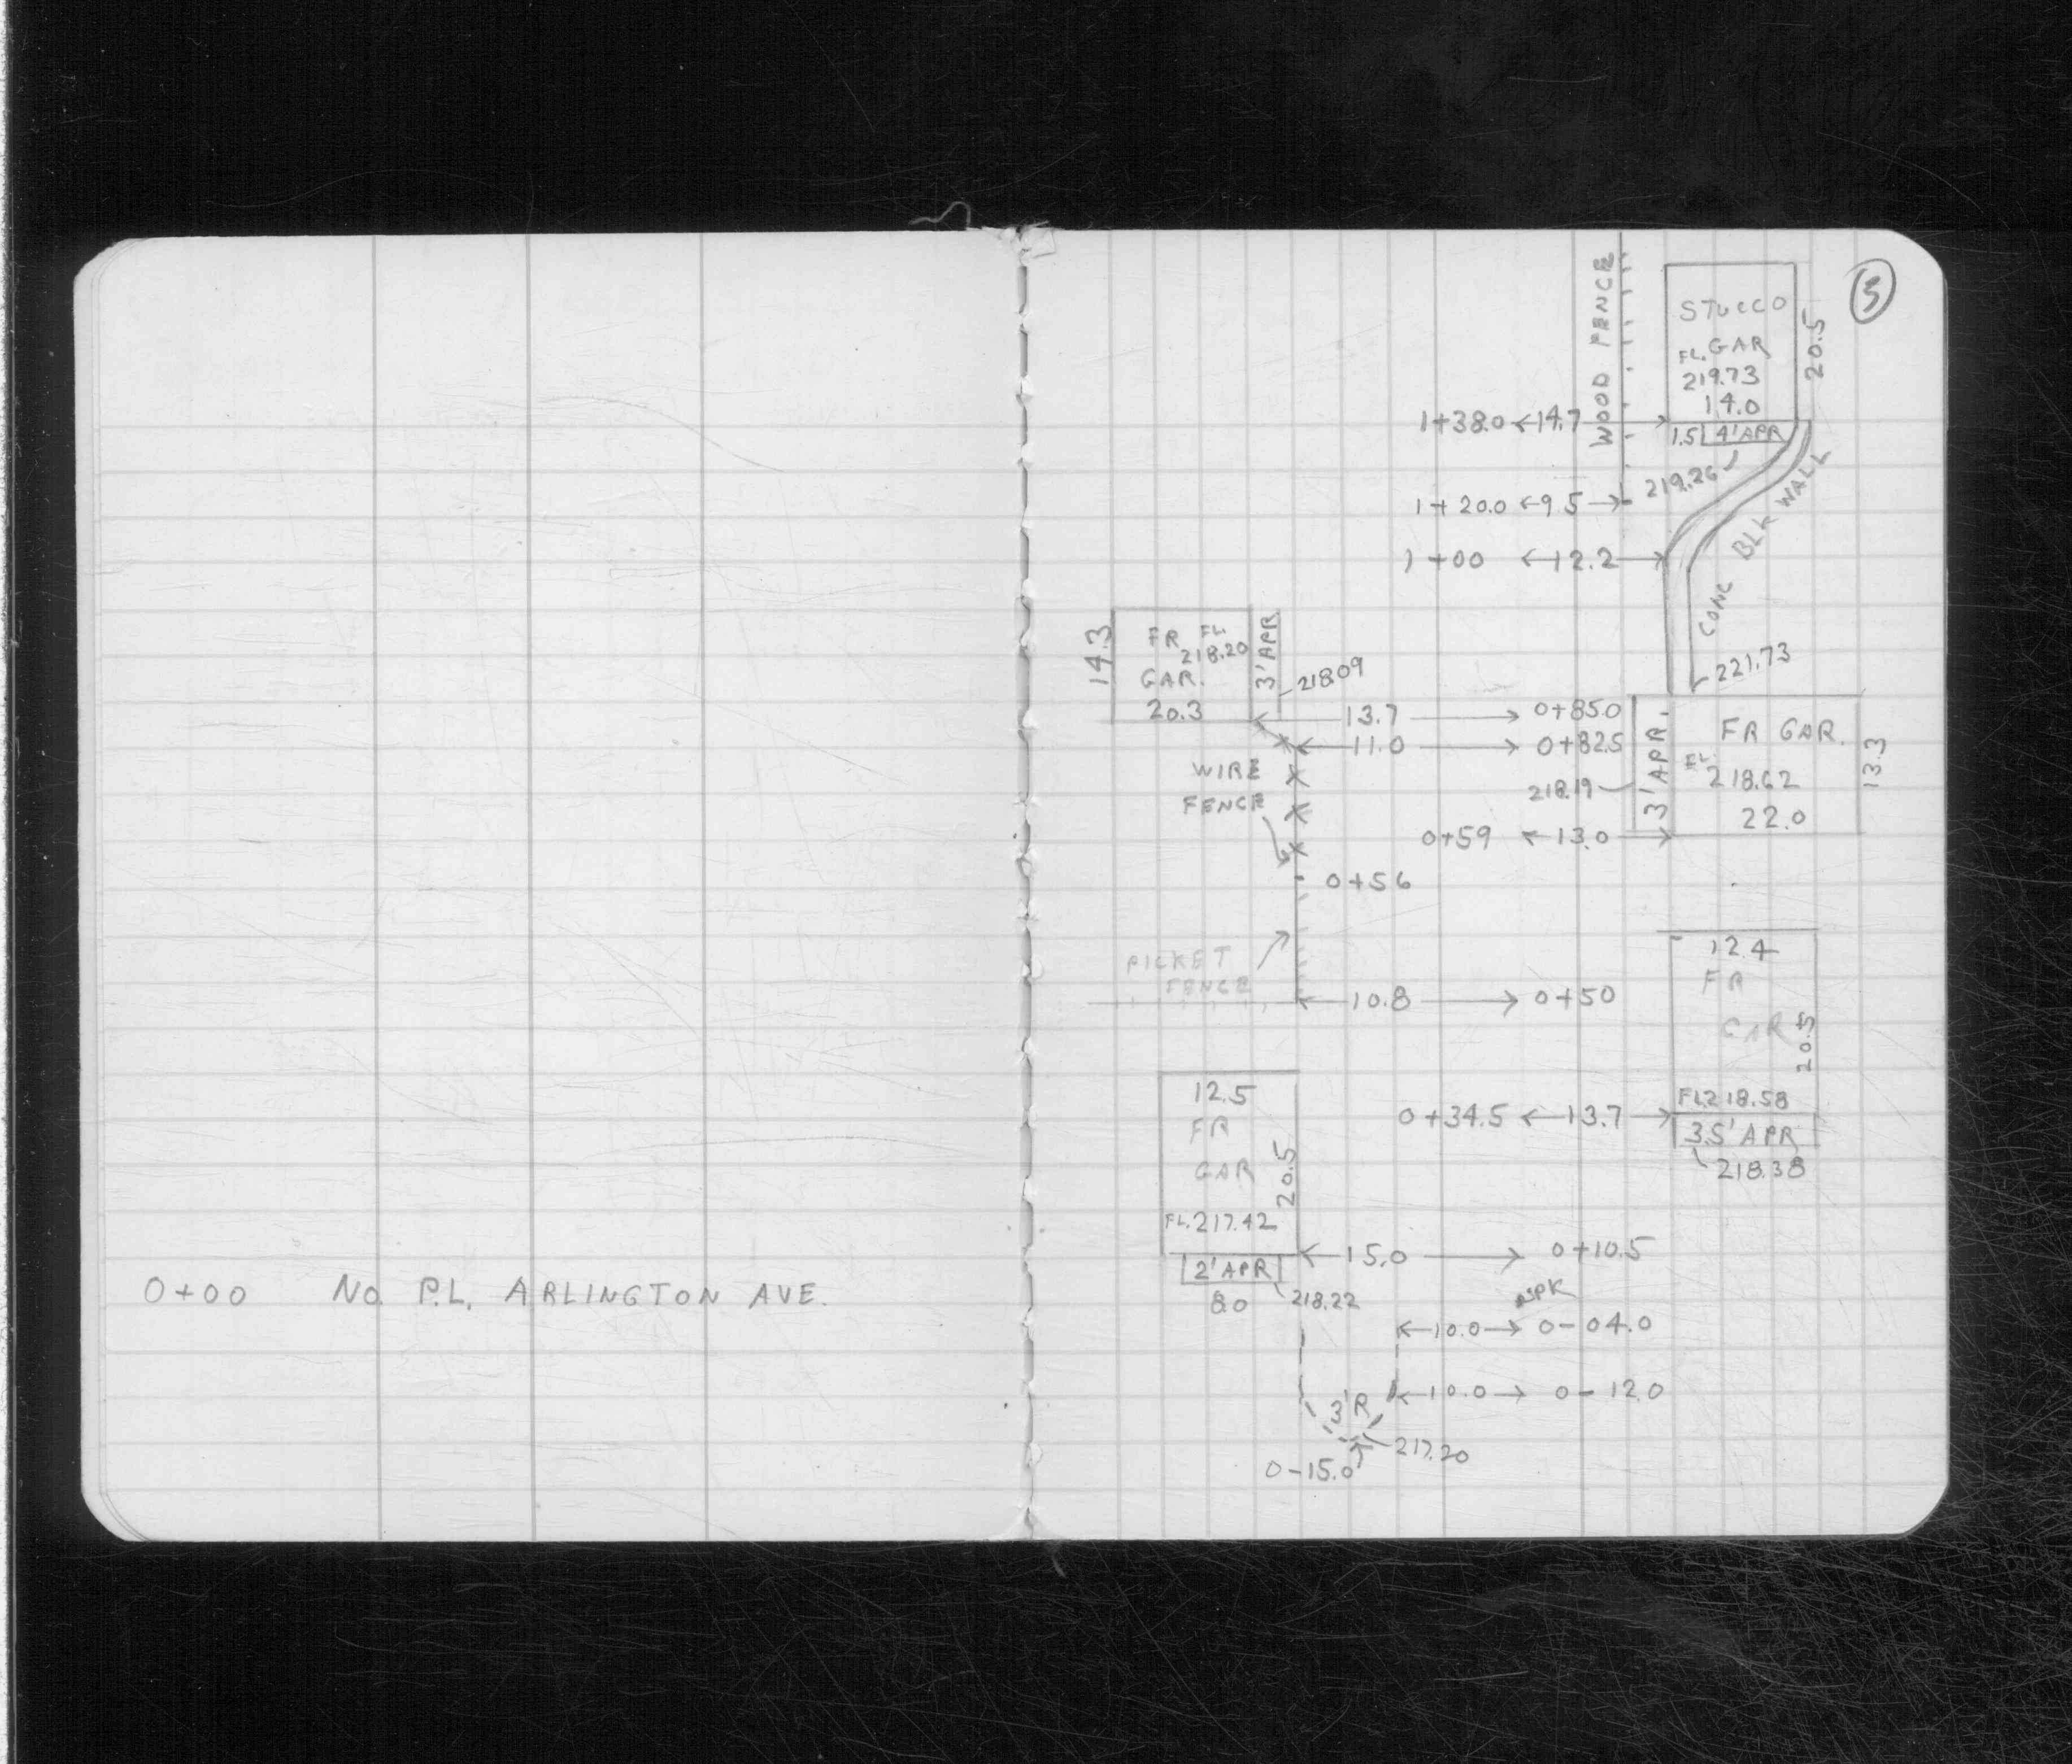 0+00 No. P.L. ARLINGTON AVE.
3
WOOD FENCE
STUCCO
FL. GAR
219.73
14.0
20.5
1+38.0 ←14.7→
1.5 4' APR
219.26
1+20.0 ←9.5→
CONC BLK WALL
1+00 ←12.2→
14.3
FR FL
218.20
GAR.
20.3
3' APR
218.09
221.73
←13.7→ 0+85.0
←11.0→ 0+82.5
3' APR.
FR GAR.
FL.
218.62
22.0
13.3
WIRE
FENCE
218.19
0+59 ←13.0→
0+56
PICKET
FENCE
←10.8→ 0+50
12.4
FR
GAR
20.5
FL 218.58
0+34.5 ←13.7→
3.5' APR
218.38
12.5
FR
GAR
20.5
FL. 217.42
←15.0→ 0+10.5
2' APR
8.0
218.22
←10.0→ 0-04.0
←10.0→ 0-12.0
3'R
217.20
0-15.0